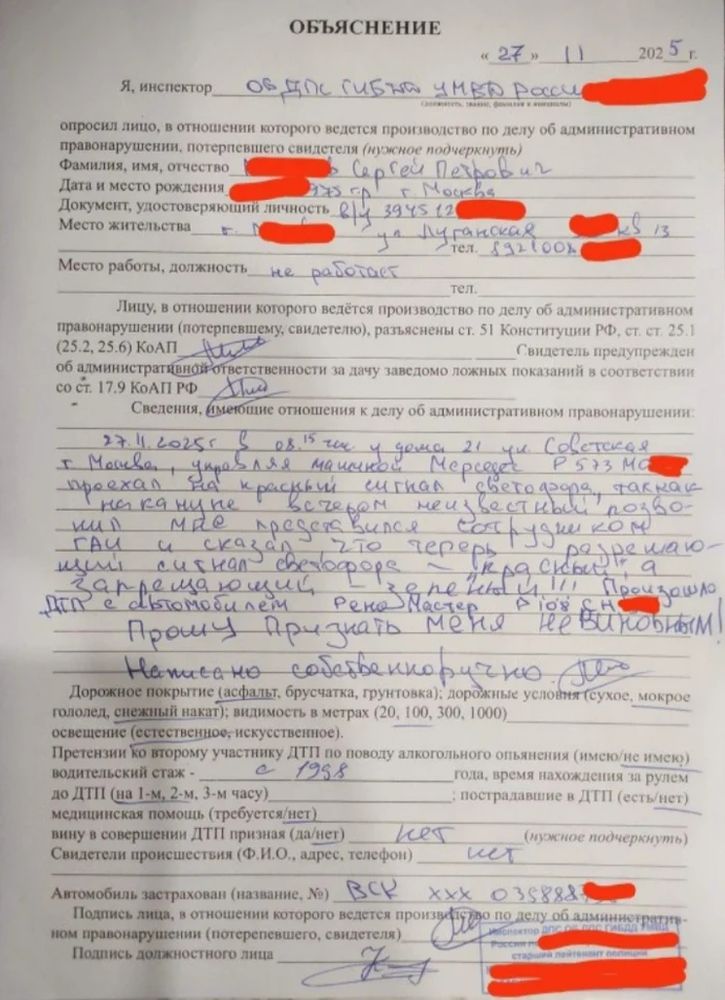 ОБЪЯСНЕНИЕ
« 27 » 11 2025 г.
Я, инспектор ОБ ДПС ГИБДД УМВД России
(должность, звание, фамилия и инициалы)
опросил лицо, в отношении которого ведется производство по делу об административном
правонарушении, потерпевшего свидетеля (нужное подчеркнуть)
Фамилия, имя, отчество Сергей Петрович
Дата и место рождения 975 гр г. Москва
Документ, удостоверяющий личность в/у 394512
Место жительства г. ул Луганская кв 13
тел. 892100
Место работы, должность не работает
тел.
Лицу, в отношении которого ведётся производство по делу об административном
правонарушении (потерпевшему, свидетелю), разъяснены ст. 51 Конституции РФ, ст. ст. 25.1
(25.2, 25.6) КоАП Свидетель предупрежден
об административной ответственности за дачу заведомо ложных показаний в соответствии
со ст. 17.9 КоАП РФ
Сведения, имеющие отношения к делу об административном правонарушении:
27.11.2025г в 08.15 час у дома 21 ул. Советская
г Москва, управляя машиной Мерседес Р 573 МО
проехал на красный сигнал светофора, так как
накануне вечером неизвестный позво-
нил мне представился сотрудником
ГАИ и сказал что теперь разрешаю-
щий сигнал светофора – "красный", а
запрещающий – зеленый!!! Произошло
ДТП с автомобилем Рено Мастер Р 108 СН
Прошу признать меня невиновным!
Написано собственноручно.
Дорожное покрытие (асфальт, брусчатка, грунтовка); дорожные условия (сухое, мокрое
гололед, снежный накат); видимость в метрах (20, 100, 300, 1000)
освещение (естественное, искусственное).
Претензии ко второму участнику ДТП по поводу алкогольного опьянения (имею/не имею)
водительский стаж - с 1998 года, время нахождения за рулем
до ДТП (на 1-м, 2-м, 3-м часу) ; пострадавшие в ДТП (есть/нет)
медицинская помощь (требуется/нет)
вину в совершении ДТП призная (да/нет) нет (нужное подчеркнуть)
Свидетели происшествия (Ф.И.О., адрес, телефон) нет
Автомобиль застрахован (название, №) ВСК ХХХ 035888
Подпись лица, в отношении которого ведется производство по делу об административ-
ном правонарушении (потерпевшего, свидетеля)
Инспектор ДПС ОБ ДПС ГИБДД УМВД
России по
старший лейтенант полиции
Подпись должностного лица